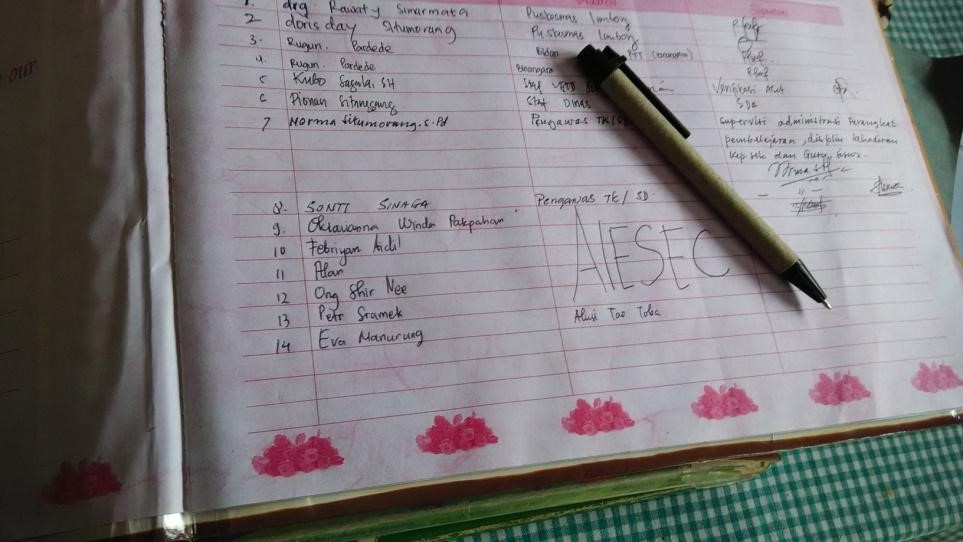 our
Address Signature
1. drg Rawaty Simarmata Puskesmas Limbong
2 doris day Situmorang Puskesmas Limbong
3. Rugun. Pardede Bidan PTT
4. Rugun. Pardede
5 Kubo Sagala, SH Staf
6 Staf Dinas SDA
7. Norma Situmorang. S.Pd Pengawas TK/SD Supervisi administrasi Perangkat
pembelajaran, disiplin kehadiran
Kepsek dan Guru,
8. SONTI SINAGA Pengawas TK / SD
9. Oktavianna Winda Pakpahan
10 Febriyan Aidil AIESEC
11 Alan
12 Ong Shir Nee
13 Petr Sramek Alusi Tao Toba
14 Eva Manurung